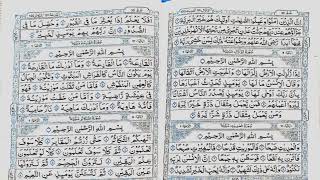 إِنَّ الَّذِيْنَ اٰمَنُوْا وَعَمِلُوا الصّٰلِحٰتِ اُولٰٓئِكَ هُمْ خَيْرُ الْبَرِيَّةِ
جَزَآؤُهُمْ عِنْدَ رَبِّهِمْ جَنّٰتُ عَدْنٍ تَجْرِيْ مِنْ تَحْتِهَا الْاَنْهٰرُ خٰلِدِيْنَ
فِيْهَآ اَبَدًا رَضِيَ اللّٰهُ عَنْهُمْ وَرَضُوْا عَنْهُ ذٰلِكَ لِمَنْ خَشِيَ رَبَّهٗ
بِسْمِ اللّٰهِ الرَّحْمٰنِ الرَّحِيْمِ
اِذَا زُلْزِلَتِ الْاَرْضُ زِلْزَالَهَا وَاَخْرَجَتِ الْاَرْضُ اَثْقَالَهَا
وَقَالَ الْاِنْسَانُ مَا لَهَا يَوْمَئِذٍ تُحَدِّثُ اَخْبَارَهَا بِاَنَّ رَبَّكَ اَوْحٰى لَهَا
يَوْمَئِذٍ يَّصْدُرُ النَّاسُ اَشْتَاتًا لِّيُرَوْا اَعْمَالَهُمْ فَمَنْ يَّعْمَلْ
مِثْقَالَ ذَرَّةٍ خَيْرًا يَّرَهٗ وَمَنْ يَّعْمَلْ مِثْقَالَ ذَرَّةٍ شَرًّا يَّرَهٗ
بِسْمِ اللّٰهِ الرَّحْمٰنِ الرَّحِيْمِ
وَالْعٰدِيٰتِ ضَبْحًا فَالْمُوْرِيٰتِ قَدْحًا فَالْمُغِيْرٰتِ صُبْحًا
فَاَثَرْنَ بِهٖ نَقْعًا فَوَسَطْنَ بِهٖ جَمْعًا اِنَّ الْاِنْسَانَ لِرَبِّهٖ
لَكَنُوْدٌ وَاِنَّهٗ عَلٰى ذٰلِكَ لَشَهِيْدٌ وَاِنَّهٗ لِحُبِّ الْخَيْرِ لَشَدِيْدٌ
اَفَلَا يَعْلَمُ اِذَا بُعْثِرَ مَا فِي الْقُبُوْرِ وَحُصِّلَ مَا فِي
الصُّدُوْرِ اِنَّ رَبَّهُمْ بِهِمْ يَوْمَئِذٍ لَّخَبِيْرٌ
بِسْمِ اللّٰهِ الرَّحْمٰنِ الرَّحِيْمِ
اَلْقَارِعَةُ مَا الْقَارِعَةُ وَمَآ اَدْرٰىكَ مَا الْقَارِعَةُ
يَوْمَ يَكُوْنُ النَّاسُ كَالْفَرَاشِ الْمَبْثُوْثِ وَتَكُوْنُ الْجِبَالُ
كَالْعِهْنِ الْمَنْفُوْشِ فَاَمَّا مَنْ ثَقُلَتْ مَوَازِيْنُهٗ
فَهُوَ فِيْ عِيْشَةٍ رَّاضِيَةٍ وَاَمَّا مَنْ خَفَّتْ مَوَازِيْنُهٗ
فَاُمُّهٗ هَاوِيَةٌ وَمَآ اَدْرٰىكَ مَا هِيَهْ نَارٌ حَامِيَةٌ
بِسْمِ اللّٰهِ الرَّحْمٰنِ الرَّحِيْمِ
اَلْهٰىكُمُ التَّكَاثُرُ حَتّٰى زُرْتُمُ الْمَقَابِرَ كَلَّا سَوْفَ
تَعْلَمُوْنَ ثُمَّ كَلَّا سَوْفَ تَعْلَمُوْنَ كَلَّا لَوْ تَعْلَمُوْنَ
عِلْمَ الْيَقِيْنِ لَتَرَوُنَّ الْجَحِيْمَ ثُمَّ لَتَرَوُنَّهَا
عَيْنَ الْيَقِيْنِ ثُمَّ لَتُسْـَٔلُنَّ يَوْمَئِذٍ عَنِ النَّعِيْمِ